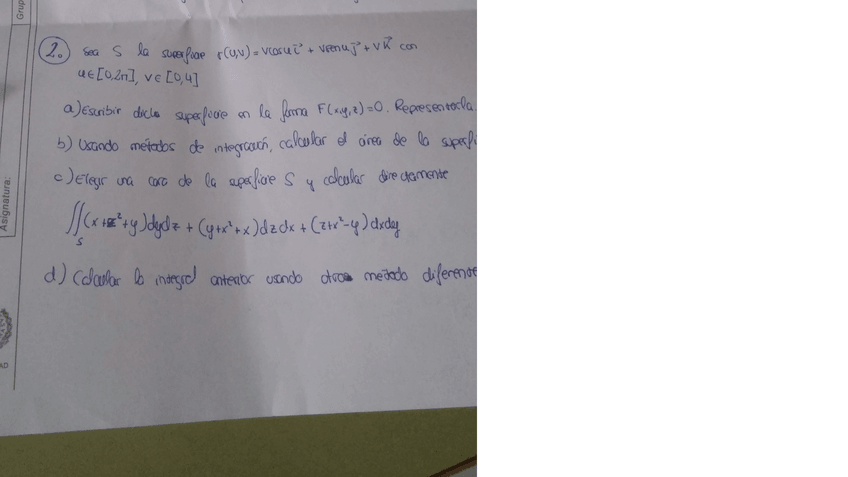 Grup
Asignatura:
2. Sea S la superficie r(u,v) = vcosu i⃗ + vsenu j⃗ + v k⃗ con
u∈[0,2π], v∈[0,4]
a) Escribir dicha superficie en la forma F(x,y,z)=0. Representarla.
b) Usando métodos de integración, calcular el área de la superfi
c) Elegir una cara de la superficie S y calcular directamente
∬_S (x+z²+y)dydz + (y+x²+x)dzdx + (z+x²-y)dxdy
d) Calcular la integral anterior usando otro método diferente